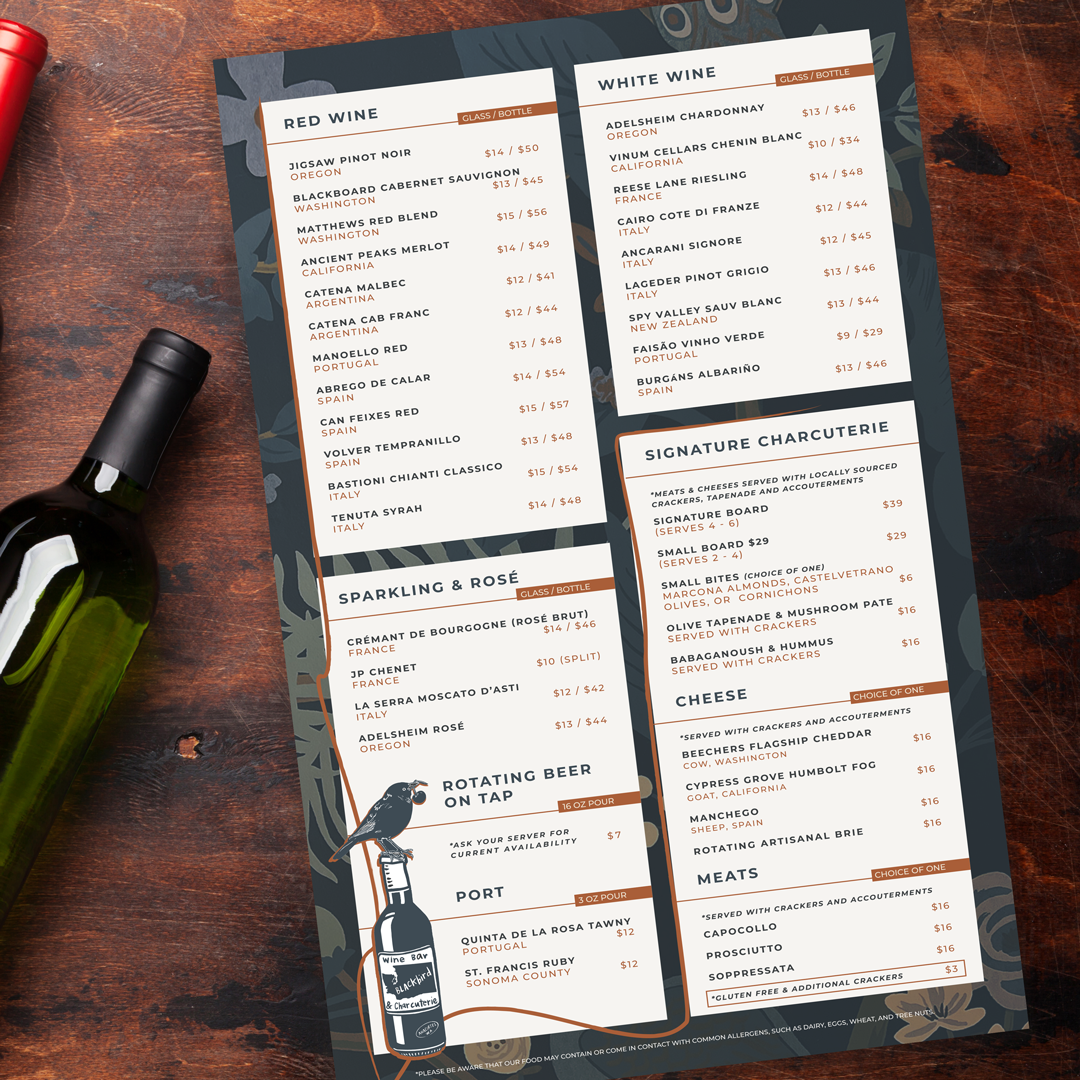 RED WINE
GLASS / BOTTLE
JIGSAW PINOT NOIR $14 / $50
OREGON
BLACKBOARD CABERNET SAUVIGNON
WASHINGTON $13 / $45
MATTHEWS RED BLEND $15 / $56
WASHINGTON
ANCIENT PEAKS MERLOT $14 / $49
CALIFORNIA
CATENA MALBEC $12 / $41
ARGENTINA
CATENA CAB FRANC $12 / $44
ARGENTINA
MANOELLO RED $13 / $48
PORTUGAL
ABREGO DE CALAR $14 / $54
SPAIN
CAN FEIXES RED $15 / $57
SPAIN
VOLVER TEMPRANILLO $13 / $48
SPAIN
BASTIONI CHIANTI CLASSICO $15 / $54
ITALY
TENUTA SYRAH $14 / $48
ITALY
SPARKLING & ROSÉ
GLASS / BOTTLE
CRÉMANT DE BOURGOGNE (ROSÉ BRUT)
FRANCE $14 / $46
JP CHENET $10 (SPLIT)
FRANCE
LA SERRA MOSCATO D'ASTI $12 / $42
ITALY
ADELSHEIM ROSÉ $13 / $44
OREGON
ROTATING BEER
ON TAP
16 OZ POUR
*ASK YOUR SERVER FOR $7
CURRENT AVAILABILITY
PORT
3 OZ POUR
QUINTA DE LA ROSA TAWNY
PORTUGAL $12
ST. FRANCIS RUBY $12
SONOMA COUNTY
Wine Bar
BLACKbird
& Charcuterie
WHITE WINE
GLASS / BOTTLE
ADELSHEIM CHARDONNAY $13 / $46
OREGON
VINUM CELLARS CHENIN BLANC $10 / $34
CALIFORNIA
REESE LANE RIESLING $14 / $48
FRANCE
CAIRO COTE DI FRANZE $12 / $44
ITALY
ANCARANI SIGNORE $12 / $45
ITALY
LAGEDER PINOT GRIGIO $13 / $46
ITALY
SPY VALLEY SAUV BLANC $13 / $44
NEW ZEALAND
FAISÃO VINHO VERDE $9 / $29
PORTUGAL
BURGÁNS ALBARIÑO $13 / $46
SPAIN
SIGNATURE CHARCUTERIE
*MEATS & CHEESES SERVED WITH LOCALLY SOURCED
CRACKERS, TAPENADE AND ACCOUTERMENTS
SIGNATURE BOARD $39
(SERVES 4 - 6)
SMALL BOARD $29 $29
(SERVES 2 - 4)
SMALL BITES (CHOICE OF ONE)
MARCONA ALMONDS, CASTELVETRANO $6
OLIVES, OR CORNICHONS
OLIVE TAPENADE & MUSHROOM PATE $16
SERVED WITH CRACKERS
BABAGANOUSH & HUMMUS $16
SERVED WITH CRACKERS
CHEESE
CHOICE OF ONE
*SERVED WITH CRACKERS AND ACCOUTERMENTS
BEECHERS FLAGSHIP CHEDDAR $16
COW, WASHINGTON
CYPRESS GROVE HUMBOLT FOG $16
GOAT, CALIFORNIA
MANCHEGO $16
SHEEP, SPAIN
ROTATING ARTISANAL BRIE $16
MEATS
CHOICE OF ONE
*SERVED WITH CRACKERS AND ACCOUTERMENTS
CAPOCOLLO $16
PROSCIUTTO $16
SOPPRESSATA $16
*GLUTEN FREE & ADDITIONAL CRACKERS $3
*PLEASE BE AWARE THAT OUR FOOD MAY CONTAIN OR COME IN CONTACT WITH COMMON ALLERGENS, SUCH AS DAIRY, EGGS, WHEAT, AND TREE NUTS.